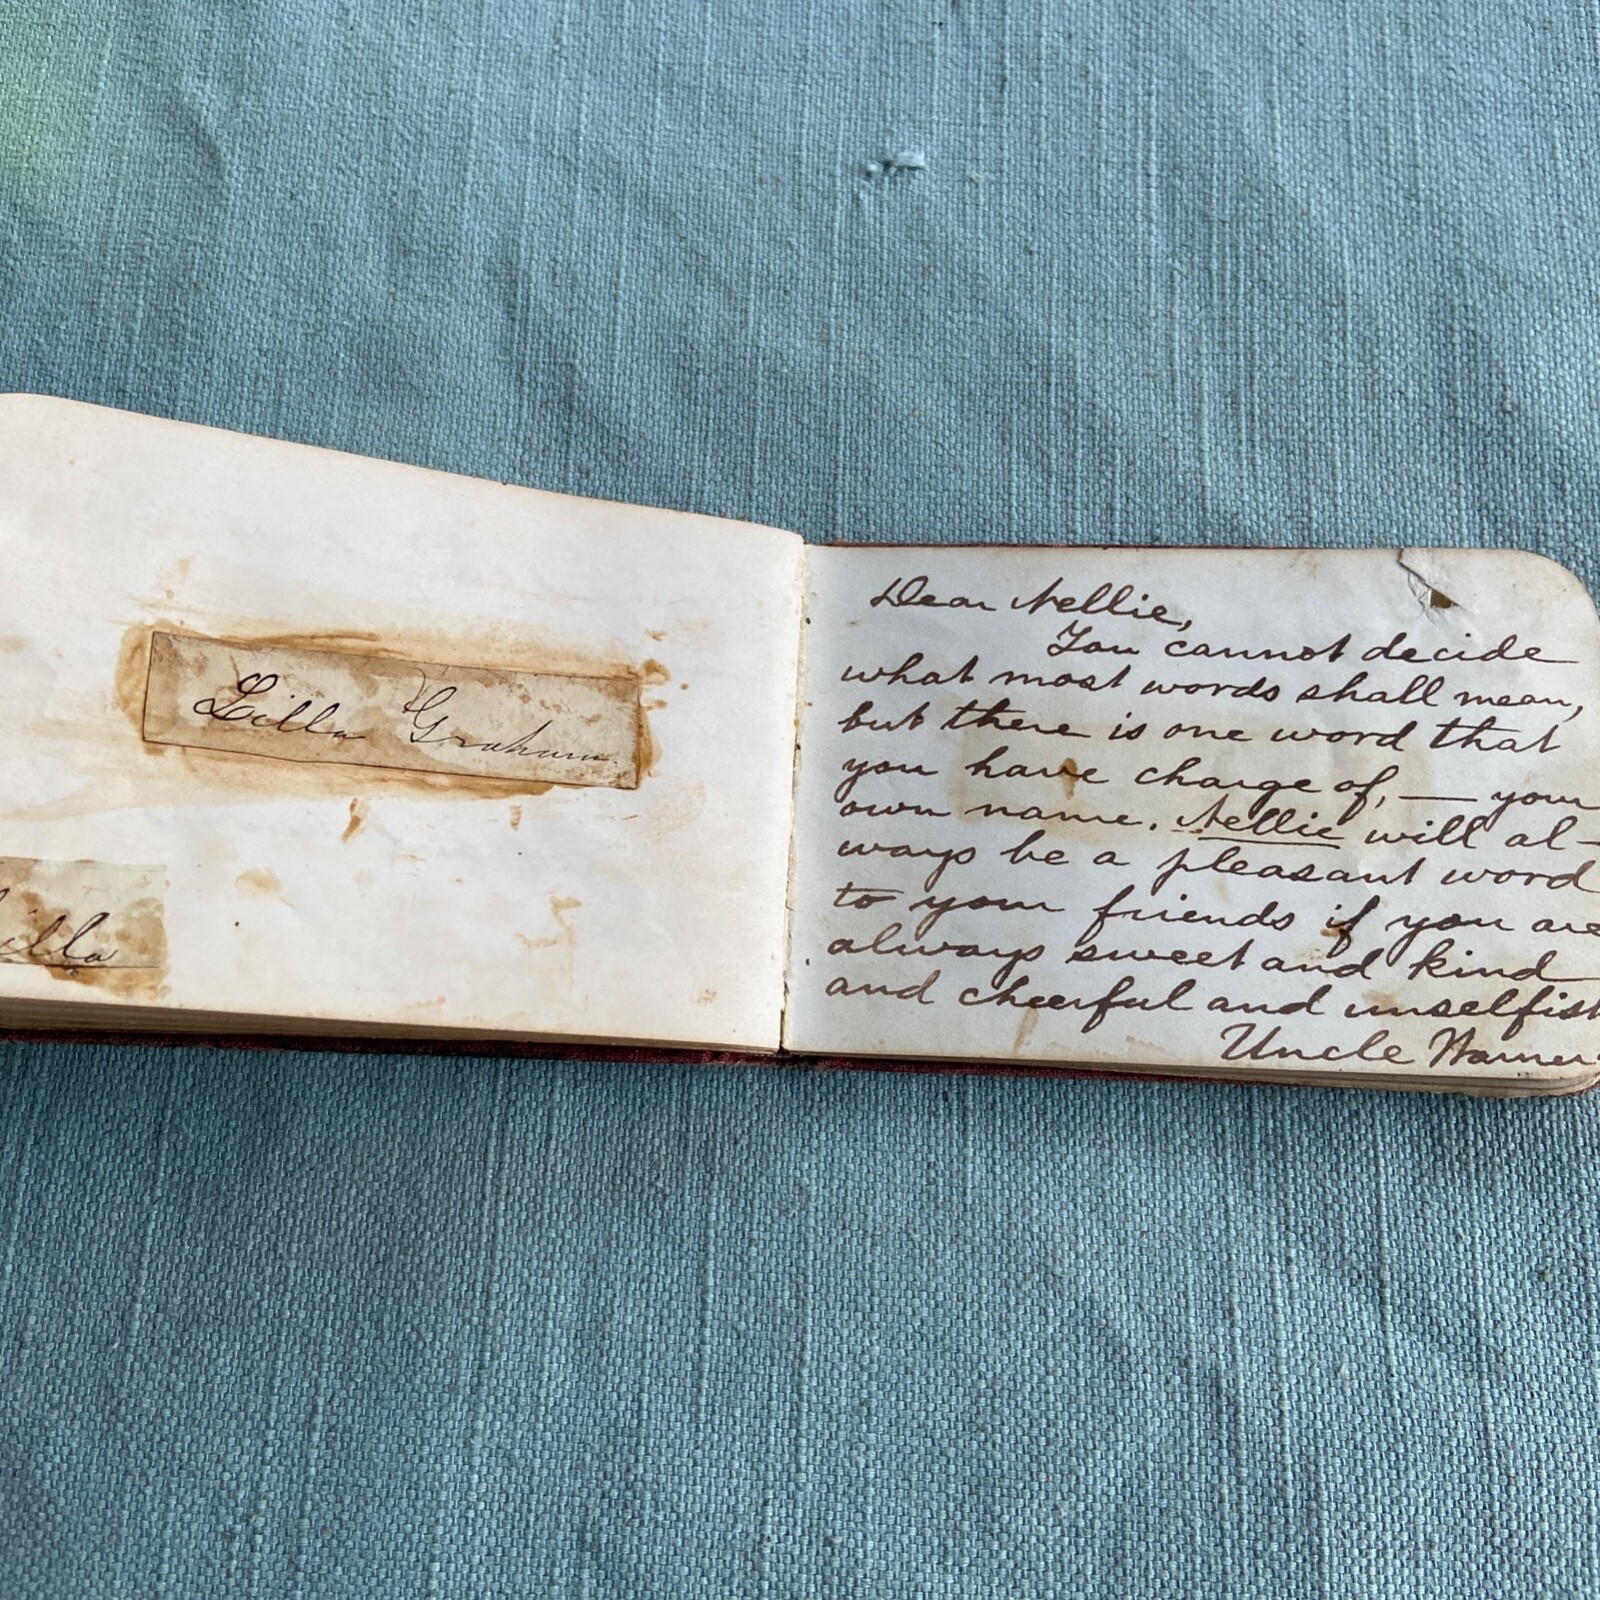 Lilla Graham.
illa
Dear Nellie,
You cannot decide
what most words shall mean,
but there is one word that
you have charge of, — your
own name. Nellie will al-
ways be a pleasant word
to your friends if you are
always sweet and kind
and cheerful and unselfish
Uncle Warner